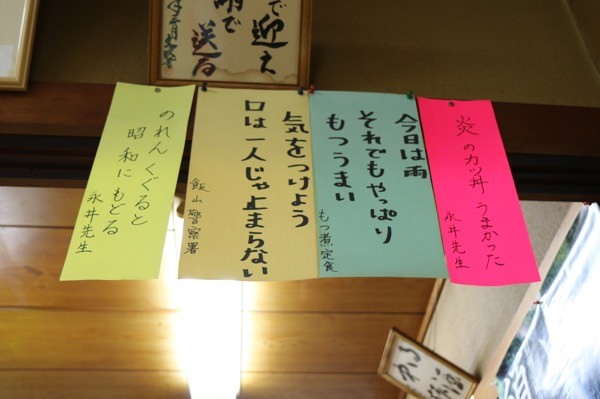 炎のカツ丼 うまかった
永井先生
今日は雨
それでもやっぱり
もつうまい
もつ煮定食
気をつけよう
口は一人じゃ止まらない
飯山警察署
のれんくぐると
昭和にもどる
永井先生
で迎え
で送る